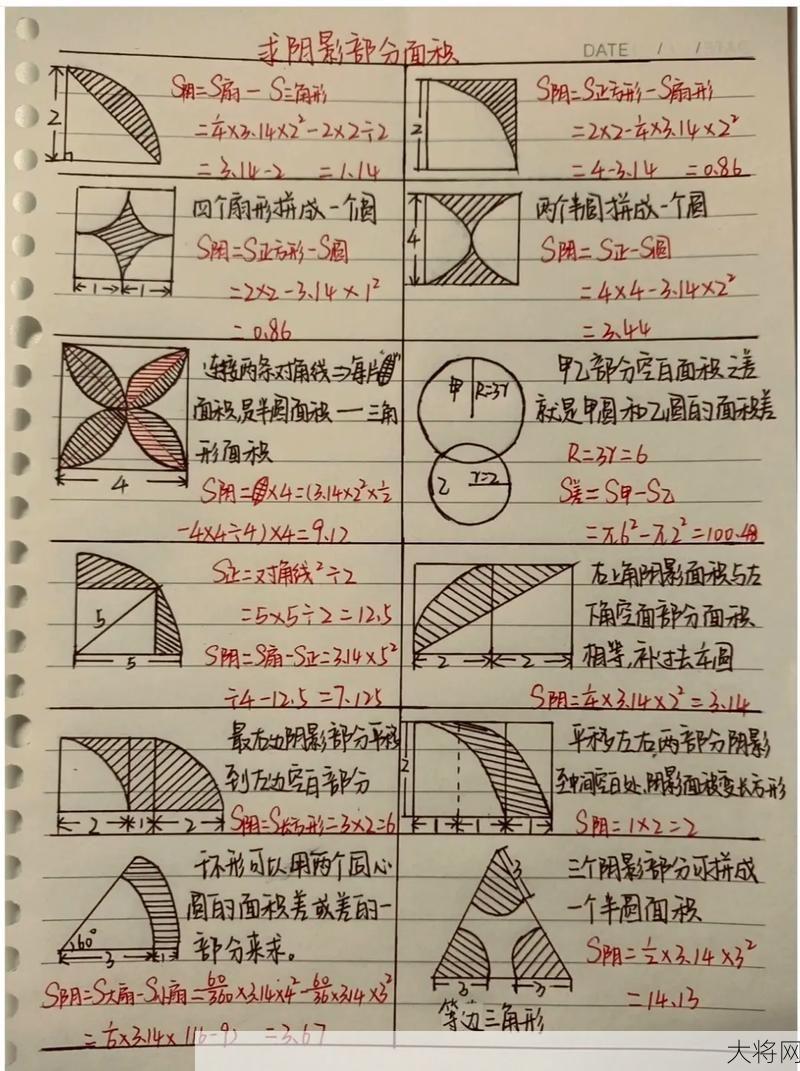 求阴影部分面积
DATE / /
2
S阴=S扇-S三角形
=¼×3.14×2²-2×2÷2
=3.14-2 =1.14
2
S阴=S正方形-S扇形
=2×2-¼×3.14×2²
=4-3.14 =0.86
1 1
四个扇形拼成一个圆
S阴=S正方形-S圆
=2×2-3.14×1²
=0.86
4
两个半圆拼成一个圆
S阴=S正-S圆
=4×4-3.14×2²
=3.44
4
连接两条对角线⇒每片
面积是半圆面积一三角
形面积
S阴=×4=(3.14×2²×½
-4×4÷4)×4=9.12
甲 R=3r
乙 r=2
甲乙部分空白面积之差
就是甲圆和乙圆的面积差
R=3r=6
S差=S甲-S乙
=π6²-π2²=100.48
5
5
S正=对角线²÷2
=5×5÷2=12.5
S阴=S扇-S正=3.14×5²
÷4-12.5=7.125
2 2
右上角阴影面积与左
下角空面部分面积
相等,补过去车圆
S阴=¼×3.14×2²=3.14
2 1 2
最右边阴影部分平移
到左边空白部分
S阴=S长方形=3×2=6
2
1 1 1
平移左右,两部分阴影
至中间空白处,阴影面积变长方形
S阴=1×2=2
60°
3 1
环形可以用两个同心
圆的面积差或差的一
部分来求。
S阴=S大扇-S小扇=60/360×3.14×4²-60/36×3.14×3²
=⅙×3.14×(16-9) =3.67
3
3 3
等边三角形
三个阴影部分可拼成
一个半圆面积
S阴=½×3.14×3²
=14.13
大将网